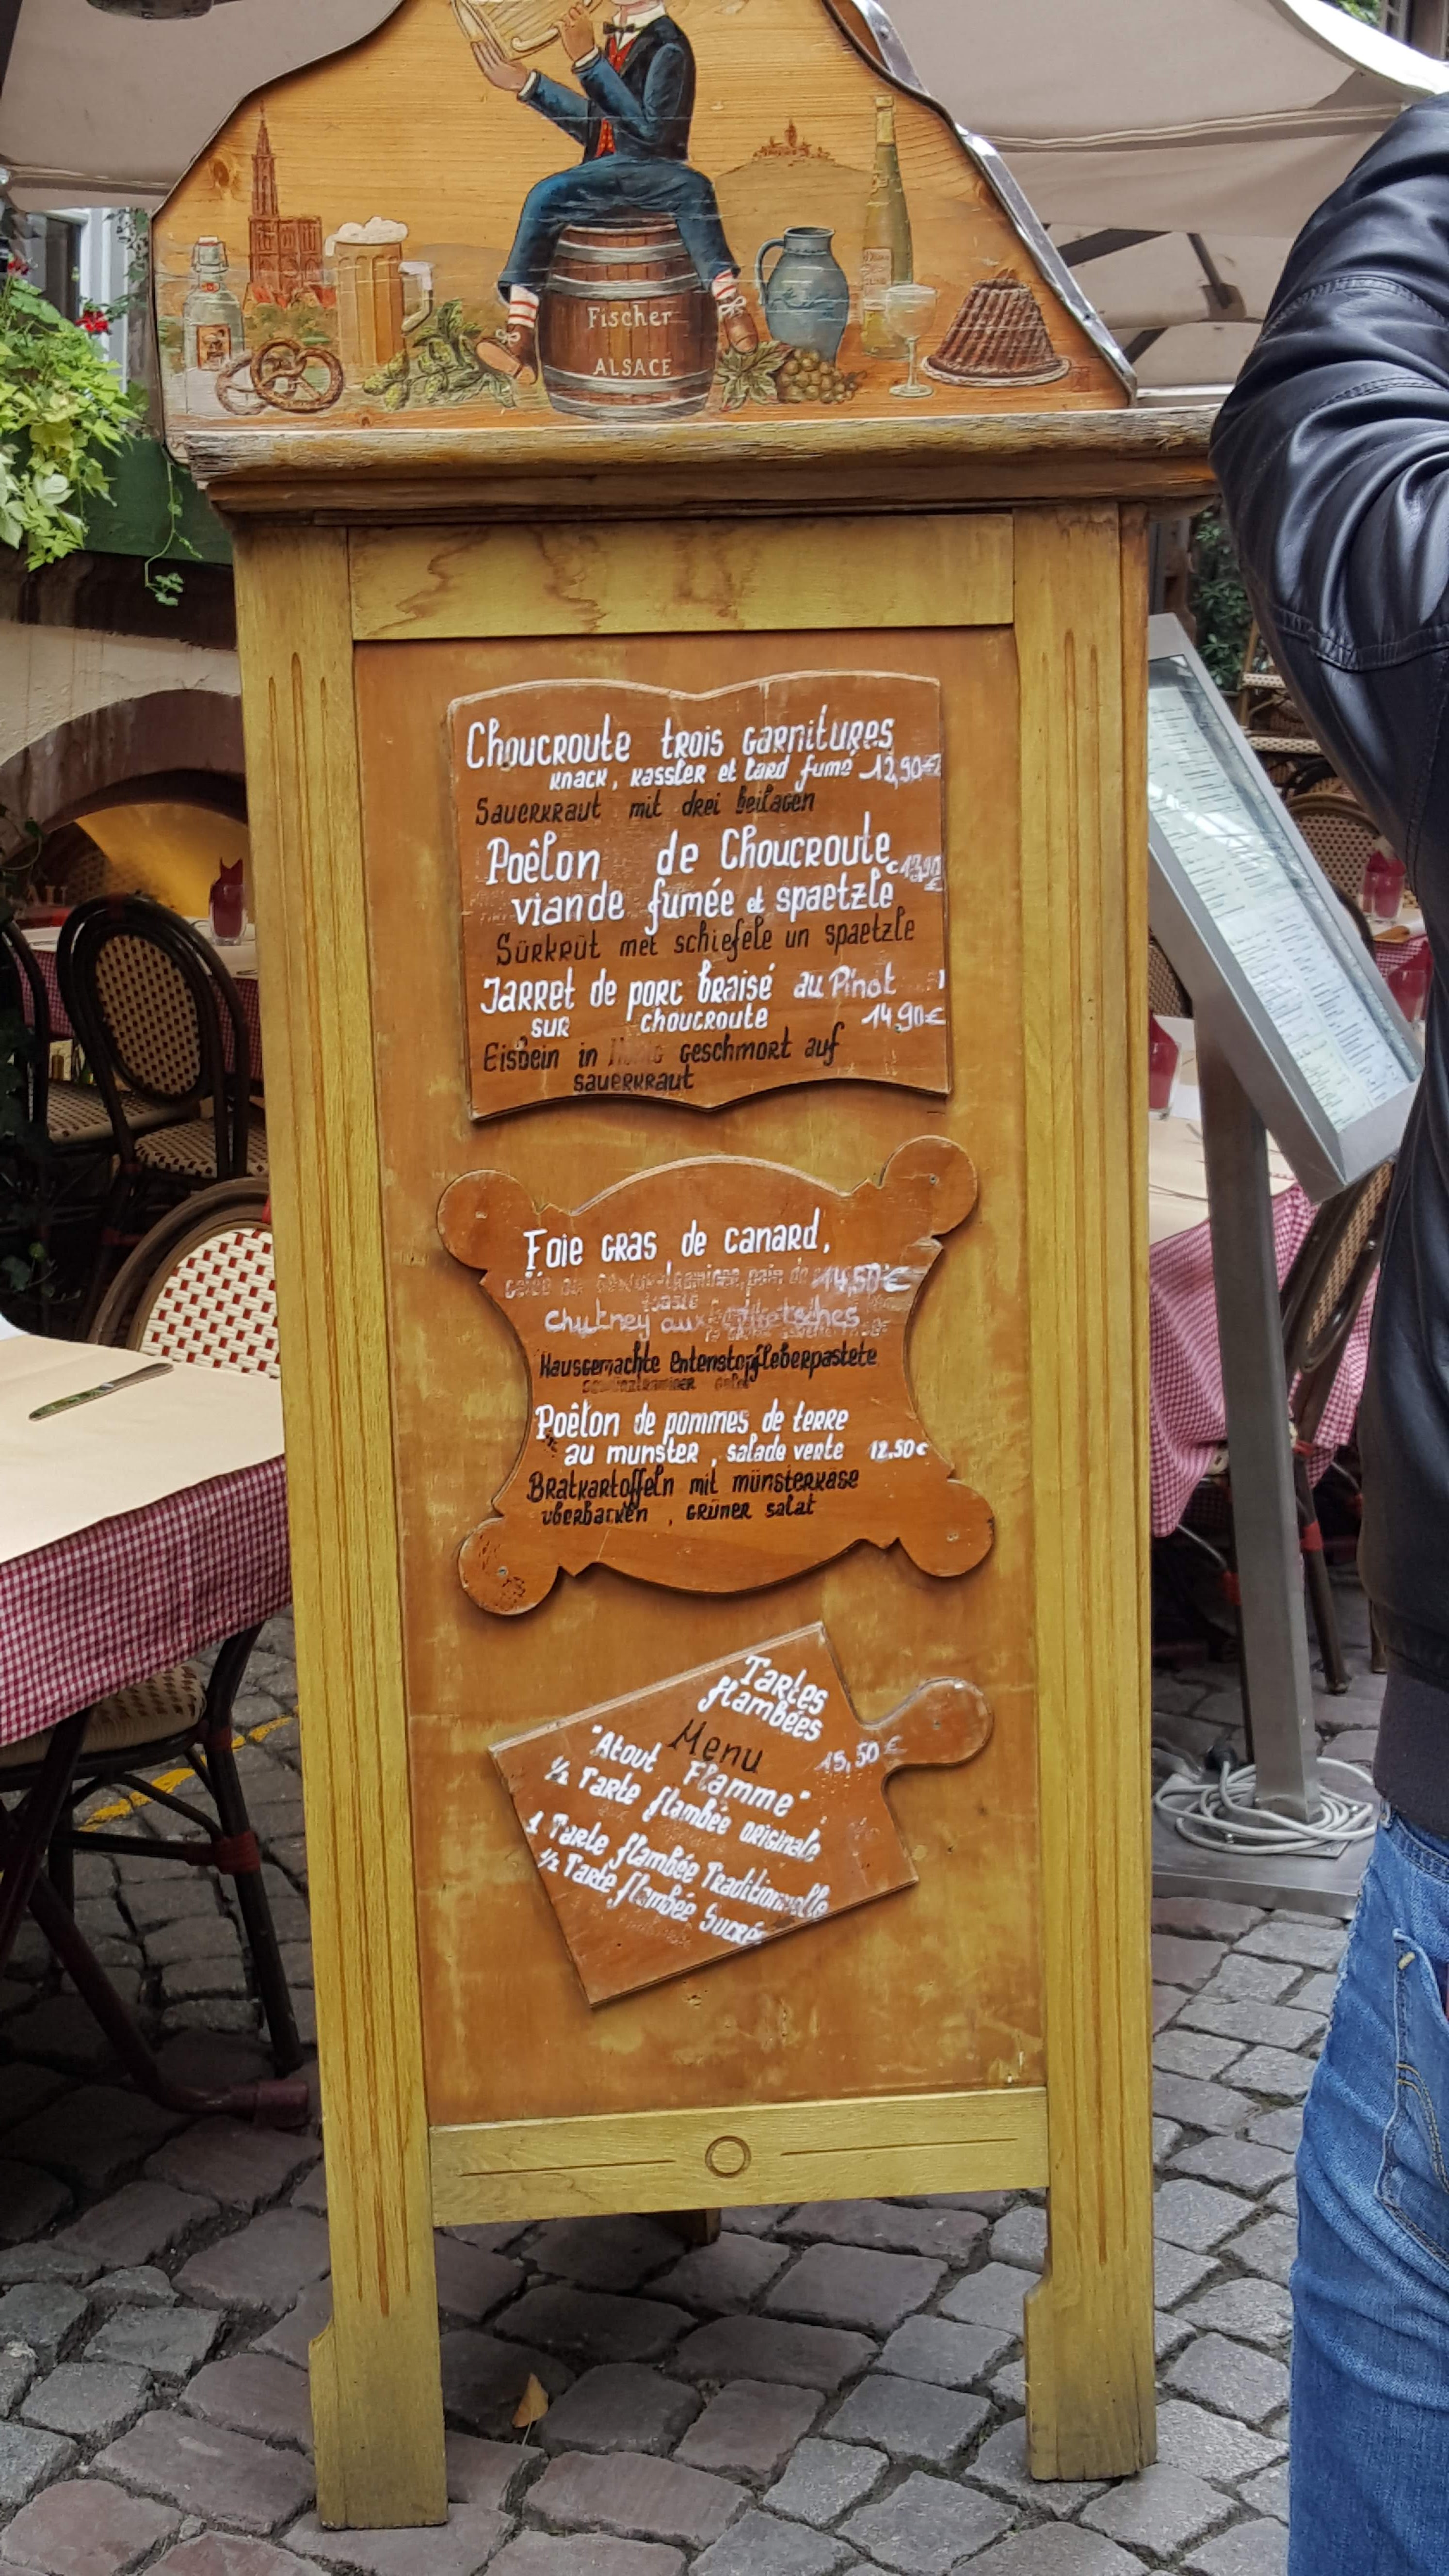 Fischer
ALSACE
Choucroute trois garnitures
knack, kassler et lard fumé 12,90€
Sauerkraut mit drei beilagen
Poêlon de Choucroute
viande fumée et spaetzle
Sürkrüt met schiefele un spaetzle
Jarret de porc braisé au Pinot
sur choucroute 14,90€
Eisbein in geschmort auf
sauerkraut
Foie gras de canard,
14,50€
Chutney aux
Hausgemachte Entenstopfleberpastete
Poêlon de pommes de terre
au munster, salade verte 12.50€
Bratkartoffeln mit münsterkäse
uberbacken, grüner salat
Tartes
flambées
Menu 15,50€
"Atout Flamme"
1/2 Tarte flambée originale
1 Tarte flambée Traditionnelle
1/2 Tarte flambée Sucrée